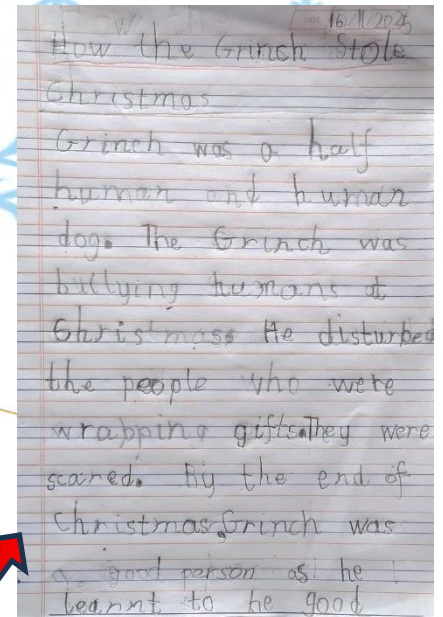 DATE 16/11/2025
How the Grinch Stole
Christmas
Grinch was a half
human and human
dog. The Grinch was
bullying humans at
Christmas. He disturbed
the people who were
wrapping gifts. They were
scared. By the end of
Christmas, Grinch was
a good person as he
learnt to be good